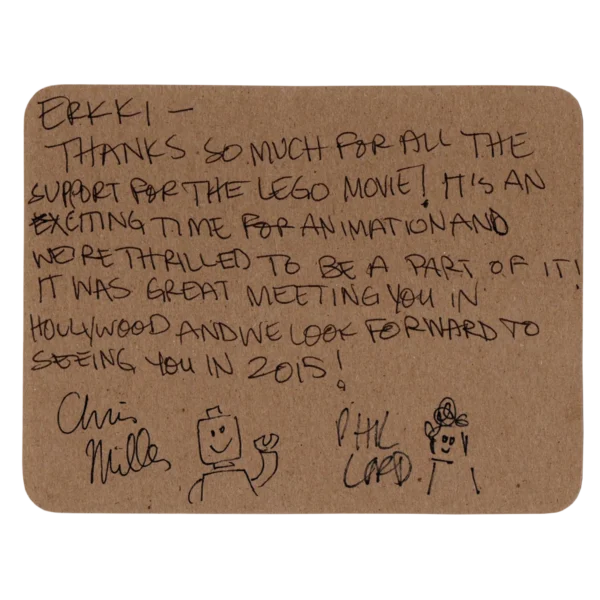 ERKKI —
THANKS SO MUCH FOR ALL THE
SUPPORT FOR THE LEGO MOVIE! IT'S AN
EXCITING TIME FOR ANIMATION AND
WE'RE THRILLED TO BE A PART OF IT!
IT WAS GREAT MEETING YOU IN
HOLLYWOOD AND WE LOOK FORWARD TO
SEEING YOU IN 2015!
Chris Miller
PHIL LORD